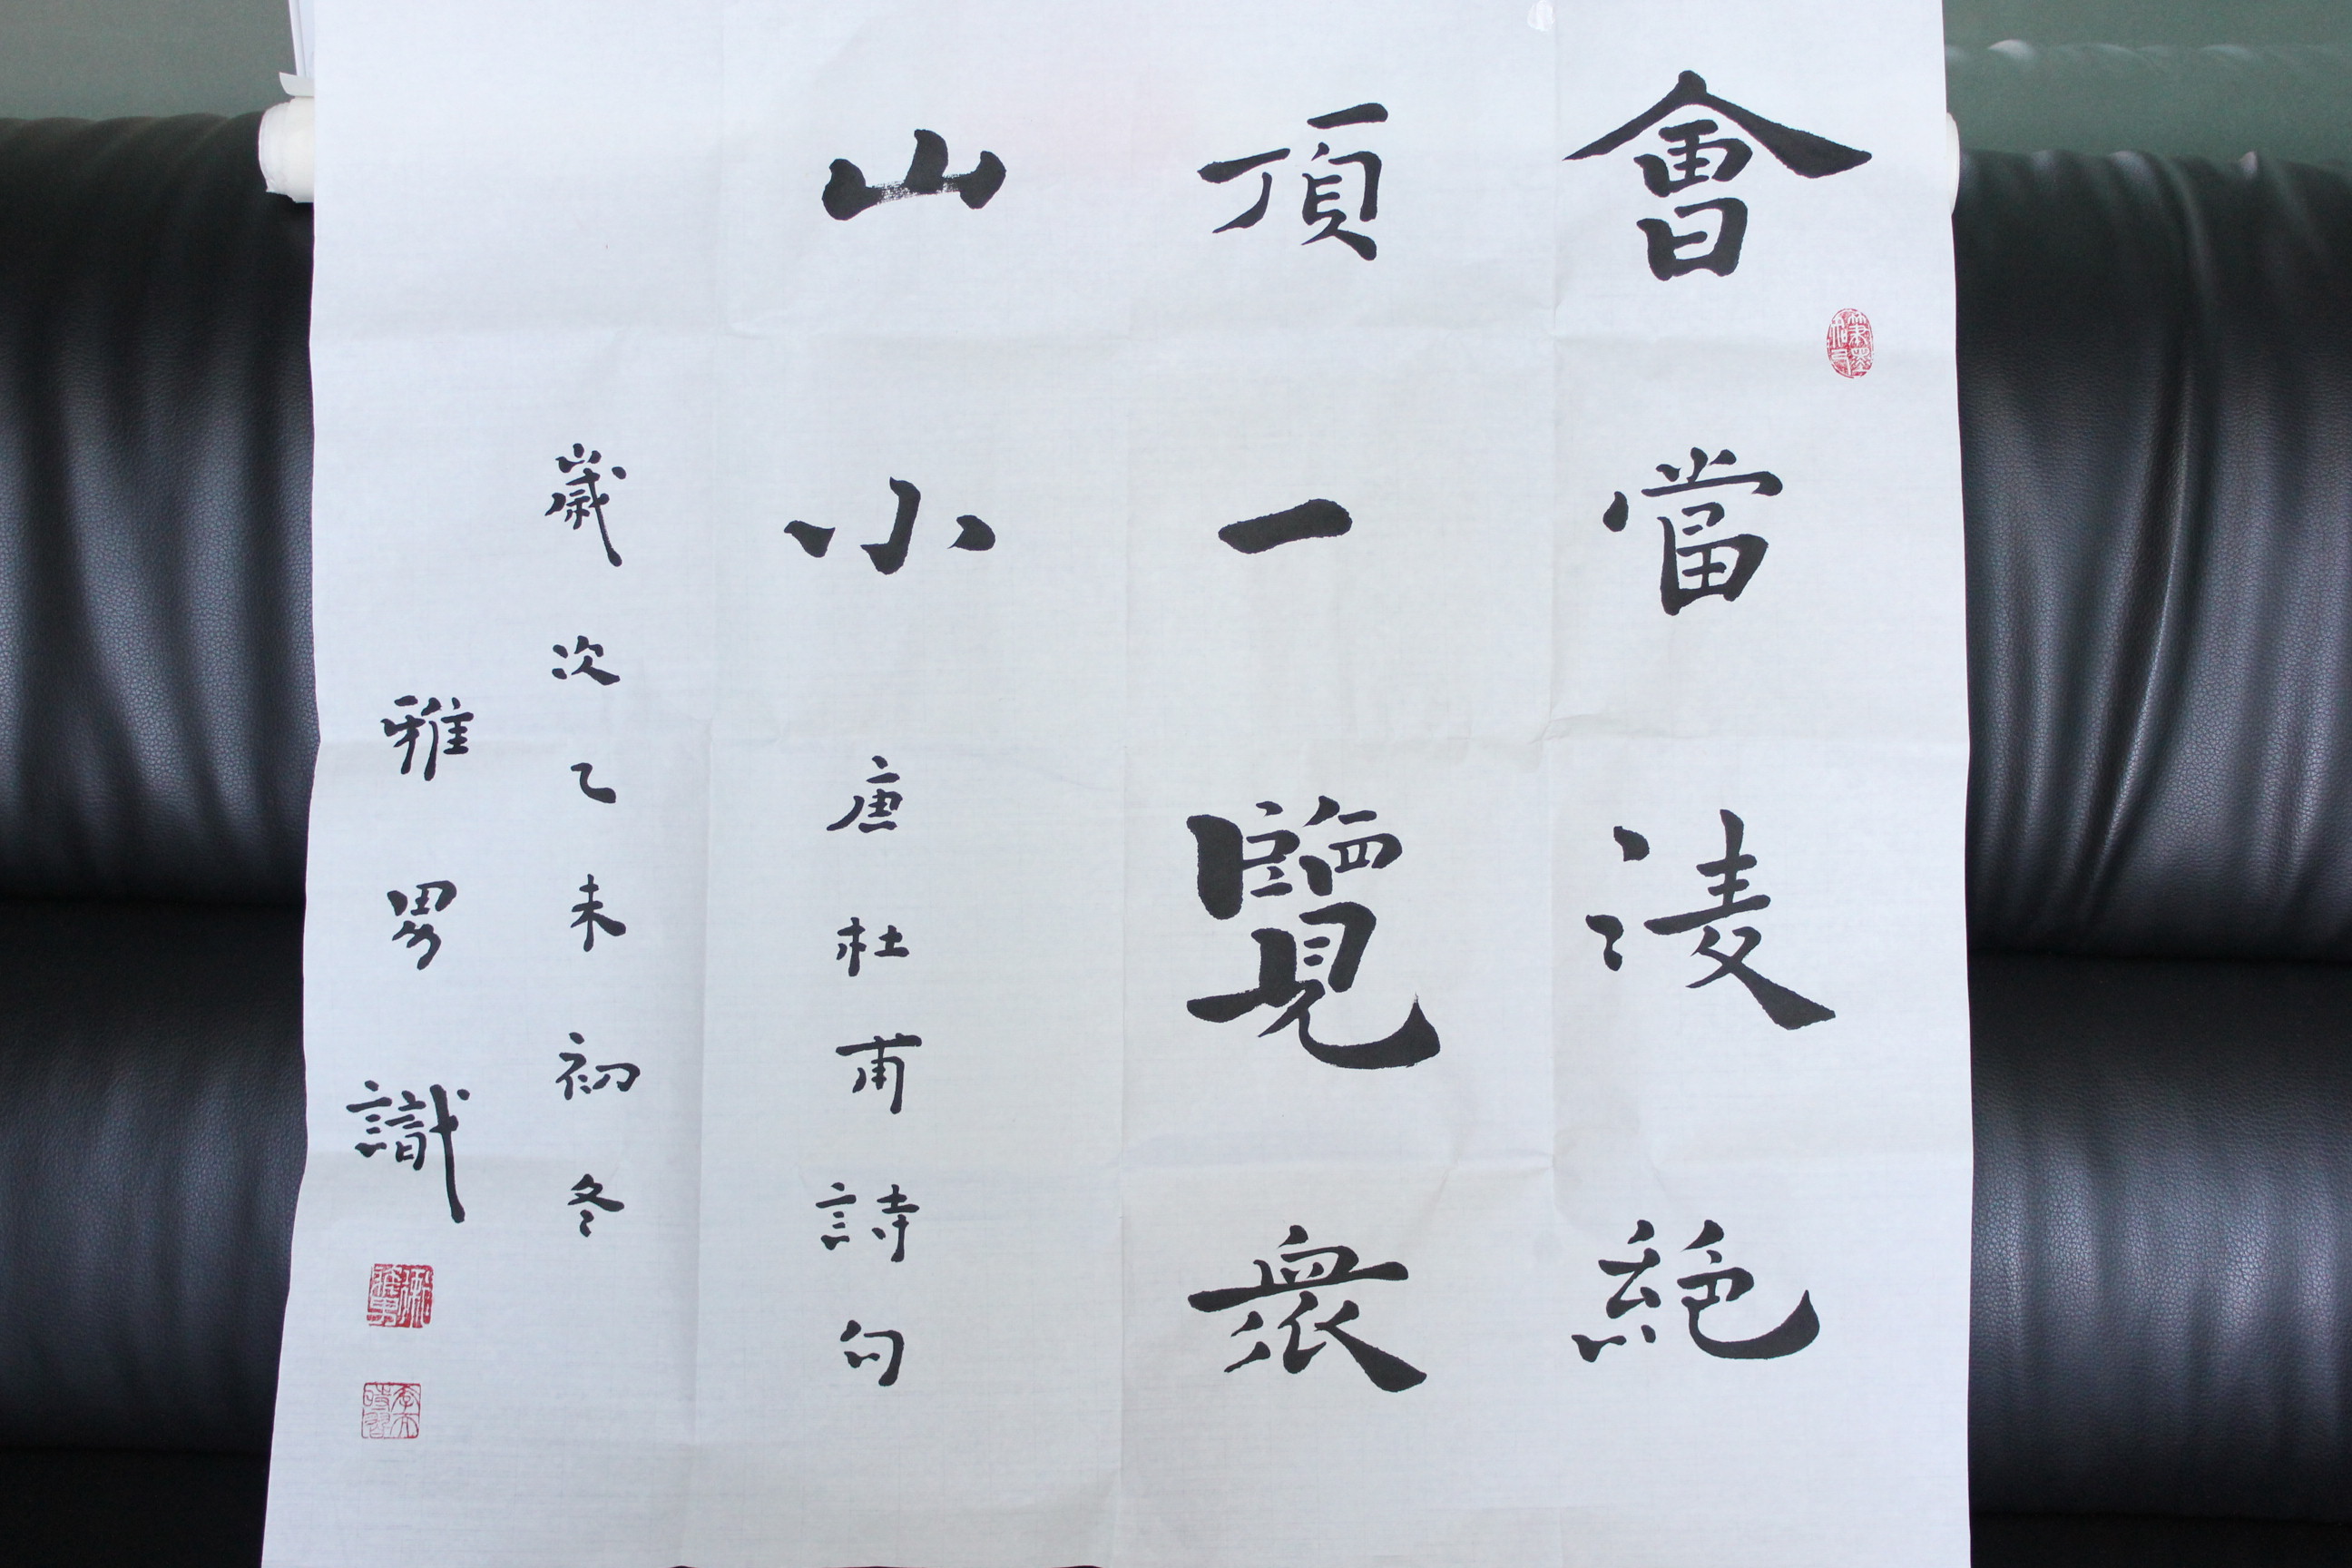 會當淩絶
頂一覽衆
山小唐杜甫詩句
歲次乙未初冬
雅男識